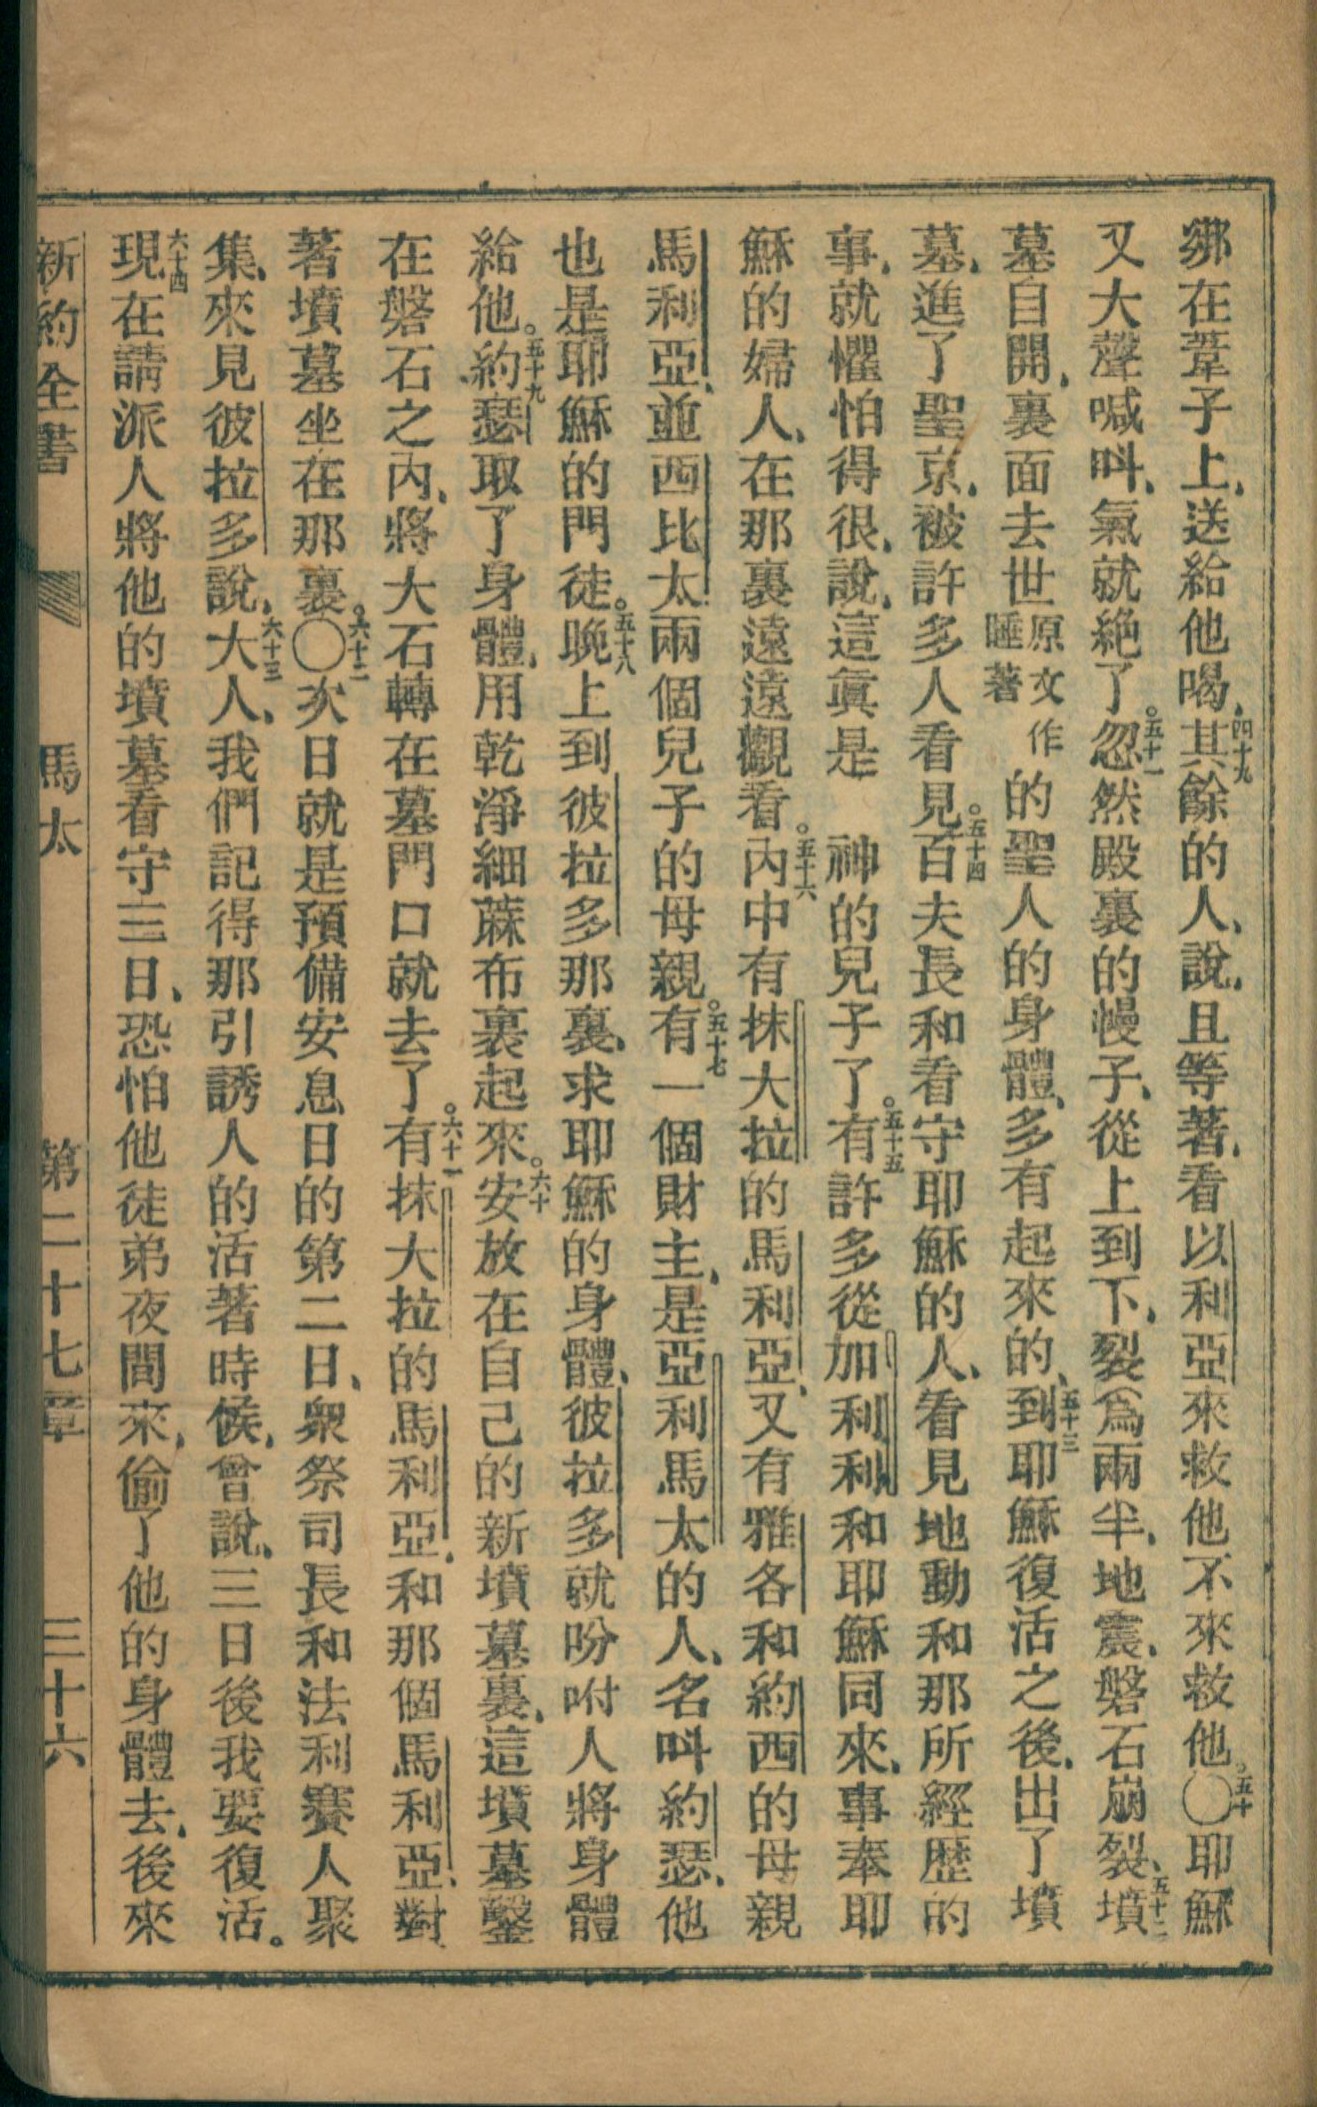 綁在葦子上、送給他喝、四十九其餘的人、說、且等著、看以利亞來救他不來救他。〇五十耶穌
又大聲喊叫、氣就絕了。五十一忽然殿裏的幔子、從上到下、裂爲兩半、地震、磐石崩裂、五十二墳
墓自開、裏面去世原文作睡著的聖人的身體、多有起來的、五十三到耶穌復活之後、出了墳
墓、進了聖京、被許多人看見。五十四百夫長和看守耶穌的人、看見地動和那所經歷的
事、就懼怕得很、說、這眞是 神的兒子了。五十五有許多從加利利和耶穌同來、事奉耶
穌的婦人、在那裏遠遠觀看。五十六內中有抹大拉的馬利亞、又有雅各和約西的母親
馬利亞、並西比太兩個兒子的母親。五十七有一個財主、是亞利馬太的人、名叫約瑟、他
也是耶穌的門徒。五十八晚上到彼拉多那裏、求耶穌的身體、彼拉多就吩咐人將身體
給他。五十九約瑟取了身體、用乾淨細蔴布裹起來。六十安放在自己的新墳墓裏、這墳墓鑿
在磐石之內、將大石轉在墓門口就去了。六十一有抹大拉的馬利亞、和那個馬利亞、對
著墳墓坐在那裏。〇六十二次日就是預備安息日的第二日、衆祭司長和法利賽人聚
集、來見彼拉多說、六十三大人、我們記得那引誘人的活著時候、曾說、三日後我要復活。
六十四現在請派人將他的墳墓看守三日、恐怕他徒弟夜間來、偷了他的身體去、後來
新約全書 馬太 第二十七章 三十六